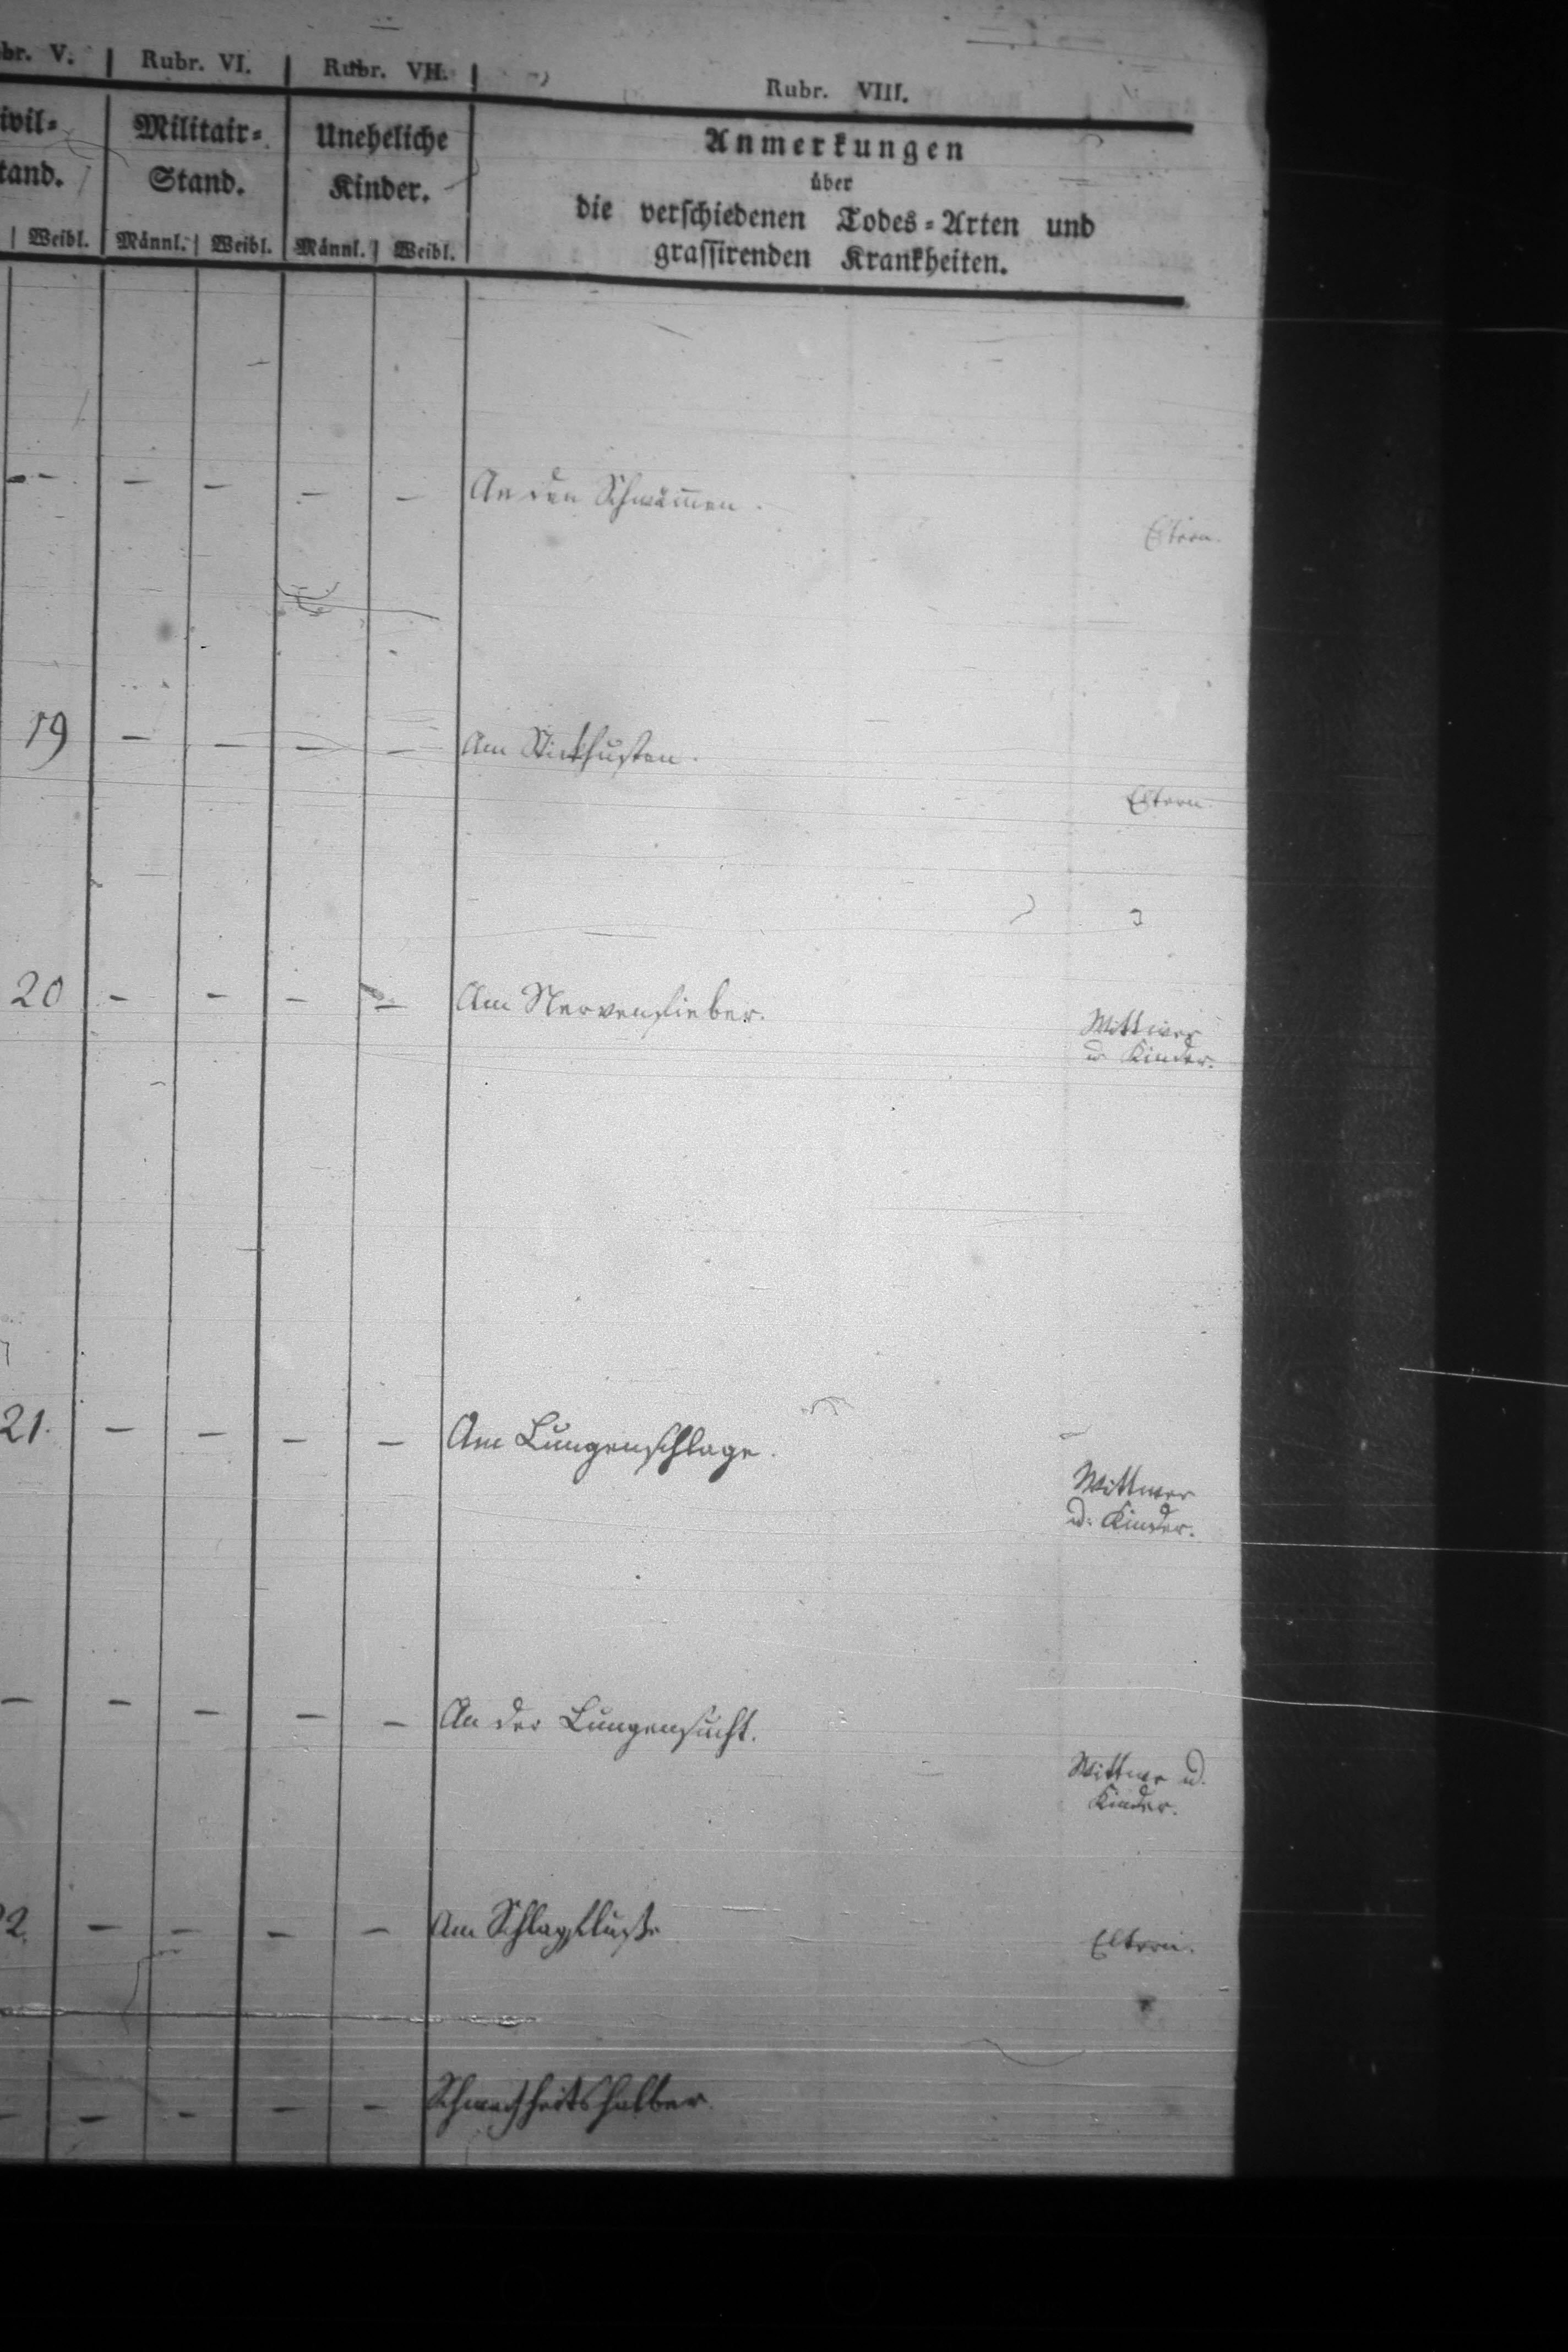 br. V. Rubr. VI. Rubr. VII. Rubr. VIII.
ivil= Militair= Uneheliche Anmerkungen
tand. Stand. Kinder. über
die verschiedenen Todes=Arten und
Weibl. Männl. Weibl. Männl. Weibl. grassirenden Krankheiten.
-- - - - - An den Schwäm̅en.
Eltern.
19 - - - - Am Stickhusten.
Eltern.
20 - - - - Am Nervenfieber.
Wittwer
u. Kinder.
21. - - - - Am Lungenschlage.
Wittwer
u. Kinder.
- - - - - An der Lungensucht.
Wittwer u.
Kinder.
2. - - - - Am Schlagflusse
Eltern.
- - - - - Schwachheitshalber.